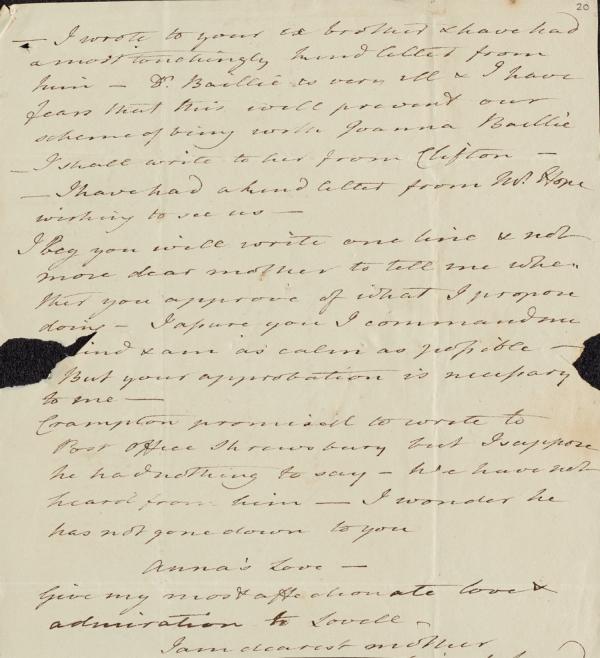 20
— I wrote to your brother & have had
a most touchingly kind letter from
him — Dr. Baillie is very ill & I have
fears that this will prevent our
scheme of being with Joanna Baillie
— I shall write to her from Clifton —
— I have had a kind letter from Mr. Hope
wishing to see us —
I beg you will write one line & not
more dear mother to tell me whe-
ther you approve of what I propose
doing — I assure you I command me
& am as calm as possible —
But your approbation is necessary
to me —
Crampton promised to wrote to
Post Office Shrewsbury but I suppose
he had nothing to say — We have not
heard from him — I wonder he
has not gone down to you
Anna's Love —
Give my most affectionate love &
admiration to Lovell —
I am dearest mother